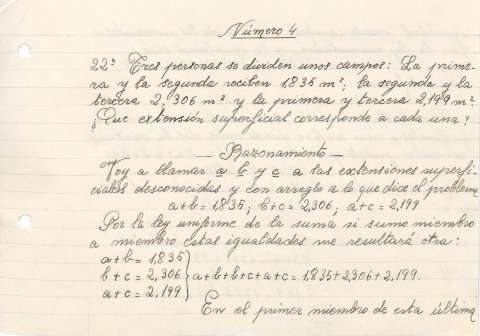 Número 4
22ª Tres personas se dividen unos campos: La prime-
ra y la segunda reciben 1,835 m²; la segunda y la
tercera 2,306 m² y la primera y tercera 2,199 m².
¿Que extensión superficial corresponde a cada una?
— Razonamiento —
Voy a llamar a b y c a las extensiones superfi-
ciales desconocidas y con arreglo a lo que dice el problema
a+b=1,835; b+c=2,306; a+c=2,199
Por la ley uniforme de la suma si sumo miembro
a miembro estas igualdades me resultará otra:
a+b= 1,835
b+c= 2,306 } a+b+b+c+a+c= 1,835+2,306+2,199.
a+c= 2,199
En el primer miembro de esta última